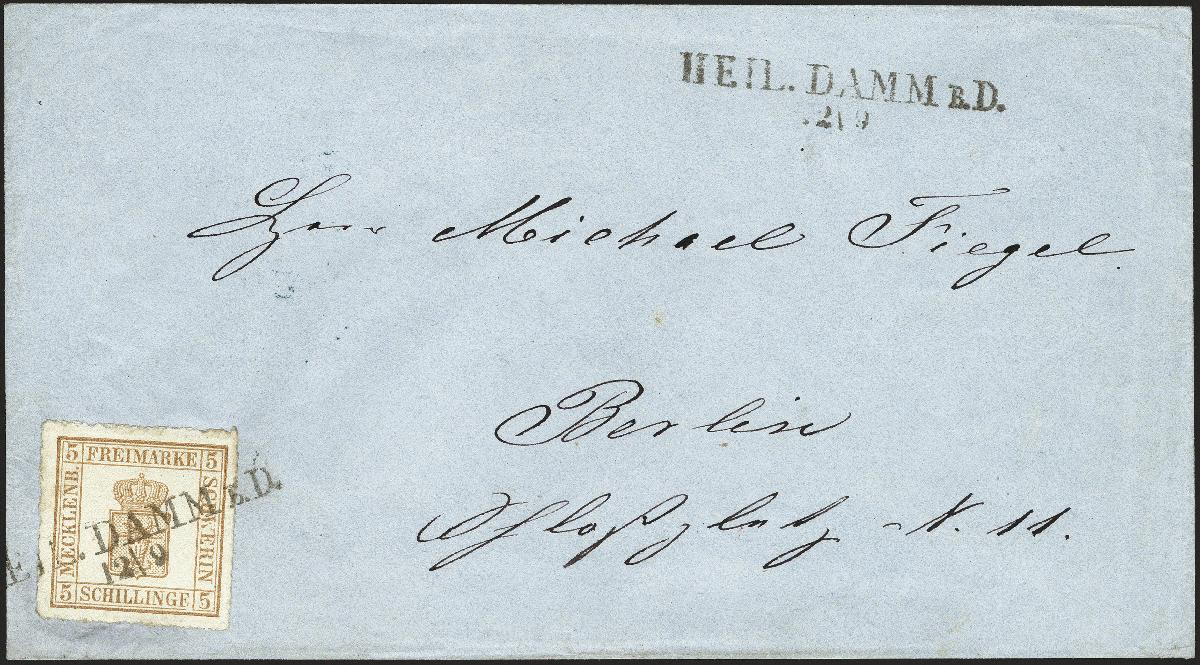 HEIL. DAMM B.D.
12/9
Herr Michael Fiegel
Berlin
Schloßplatz N. 11.
5 FREIMARKE 5
MECKLENB.
SCHWERIN
5 SCHILLINGE 5
HEIL. DAMM B.D.
12/9